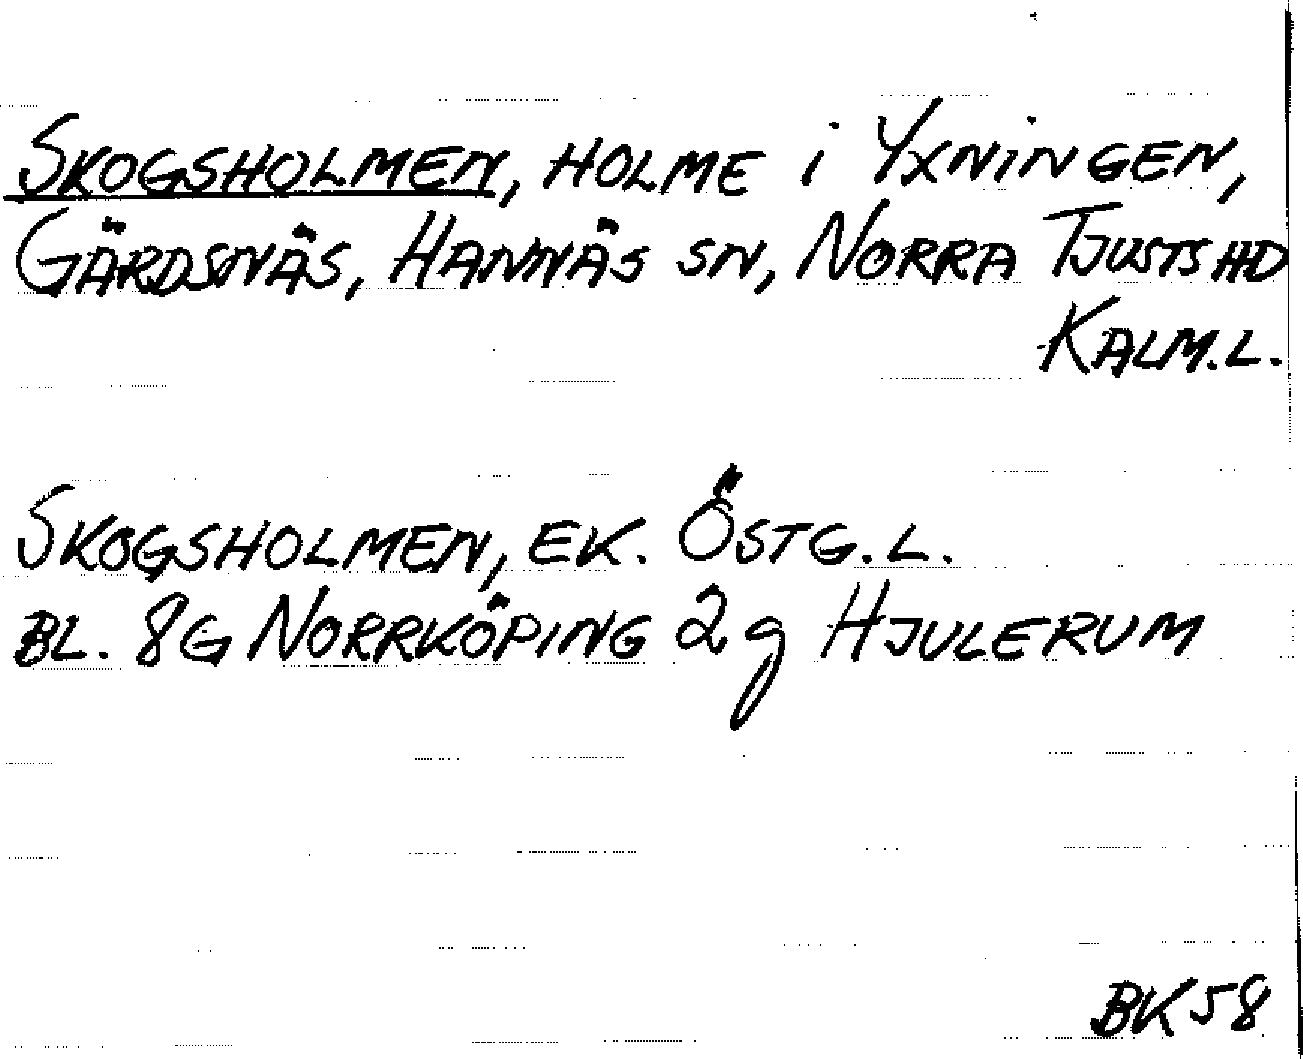 SKOGSHOLMEN, HOLME i YXNINGEN,
GÄRDSNÄS, HANNÄS SN, NORRA TJUSTS HD
KALM.L.
SKOGSHOLMEN, EK. ÖSTG.L.
BL. 8G NORRKÖPING 2g HJULERUM
BK58